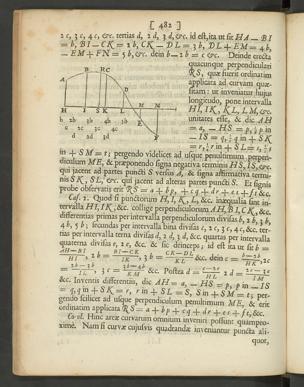 [ 482 ]
2 c, 3 c, 4 c, &c. tertias d, 2 d, 3 d, &c. id est, ita ut sit HA — BI
= b, BI — CK = 2 b, CK — DL = 3 b, DL + EM = 4 b,
— EM + FN = 5 b, &c. dein b — 2 b = c &c. Deinde erecta
quacunque perpendiculari
RS, quæ fuerit ordinatim
applicata ad curvam quæ-
sitam: ut inveniatur hujus
longitudo, pone intervalla
HI, IK, KL, LM, &c.
unitates esse, & dic AH
= a, — HS = p, ½ p in
— IS = q, ⅓ q in + SK
= r, ¼ r in + SL = s, ⅕ s
A B R C D
H I S K L M N
E F
b 2b 3b 4b 5b
c 2c 3c 4c
d 2d 3d
in + SM = t; pergendo videlicet ad usque penultimum perpen-
diculum ME, & præponendo signa negativa terminis HS, IS, &c.
qui jacent ad partes puncti S versus A, & signa affirmativa termi-
nis SK, SL, &c. qui jacent ad alteras partes puncti S. Et signis
probe observatis erit RS = a + b p, + c q + d r + e s + f t &c.
Cas. 2. Quod si punctorum H, I, K, L, &c. inæqualia sint in-
tervalla HI, IK, &c. collige perpendiculorum AH, BI, CK, &c.
differentias primas per intervalla perpendiculorum divisas b, 2 b, 3 b,
4 b, 5 b; secundas per intervalla bina divisas c, 2 c, 3 c, 4 c, &c. ter-
tias per intervalla terna divisas d, 2 d, 3 d, &c. quartas per intervalla
quaterna divisas e, 2 e, &c. & sic deinceps; id est ita ut sit b =
AH — BI / HI, 2 b = BI — CK / IK, 3 b = CK — DL / KL &c. dein c = b — 2b / HK, 2 c
= 2b — 3b / IL, 3 c = 3b — 4b / KM &c. Postea d = c — 2c / HL, 2 d = 2c — 3c / IM
&c. Inventis differentiis, dic AH = a, — HS = p, p in — IS
= q, q in + SK = r, r in + SL = s, s in + SM = t; per-
gendo scilicet ad usque perpendiculum penultimum ME, & erit
ordinatim applicata RS = a + b p + c q + d r + e s + f t, &c.
Corol. Hinc areæ curvarum omnium inveniri possunt quampro-
xime. Nam si curvæ cujusvis quadrandæ inveniantur puncta ali-
quot,